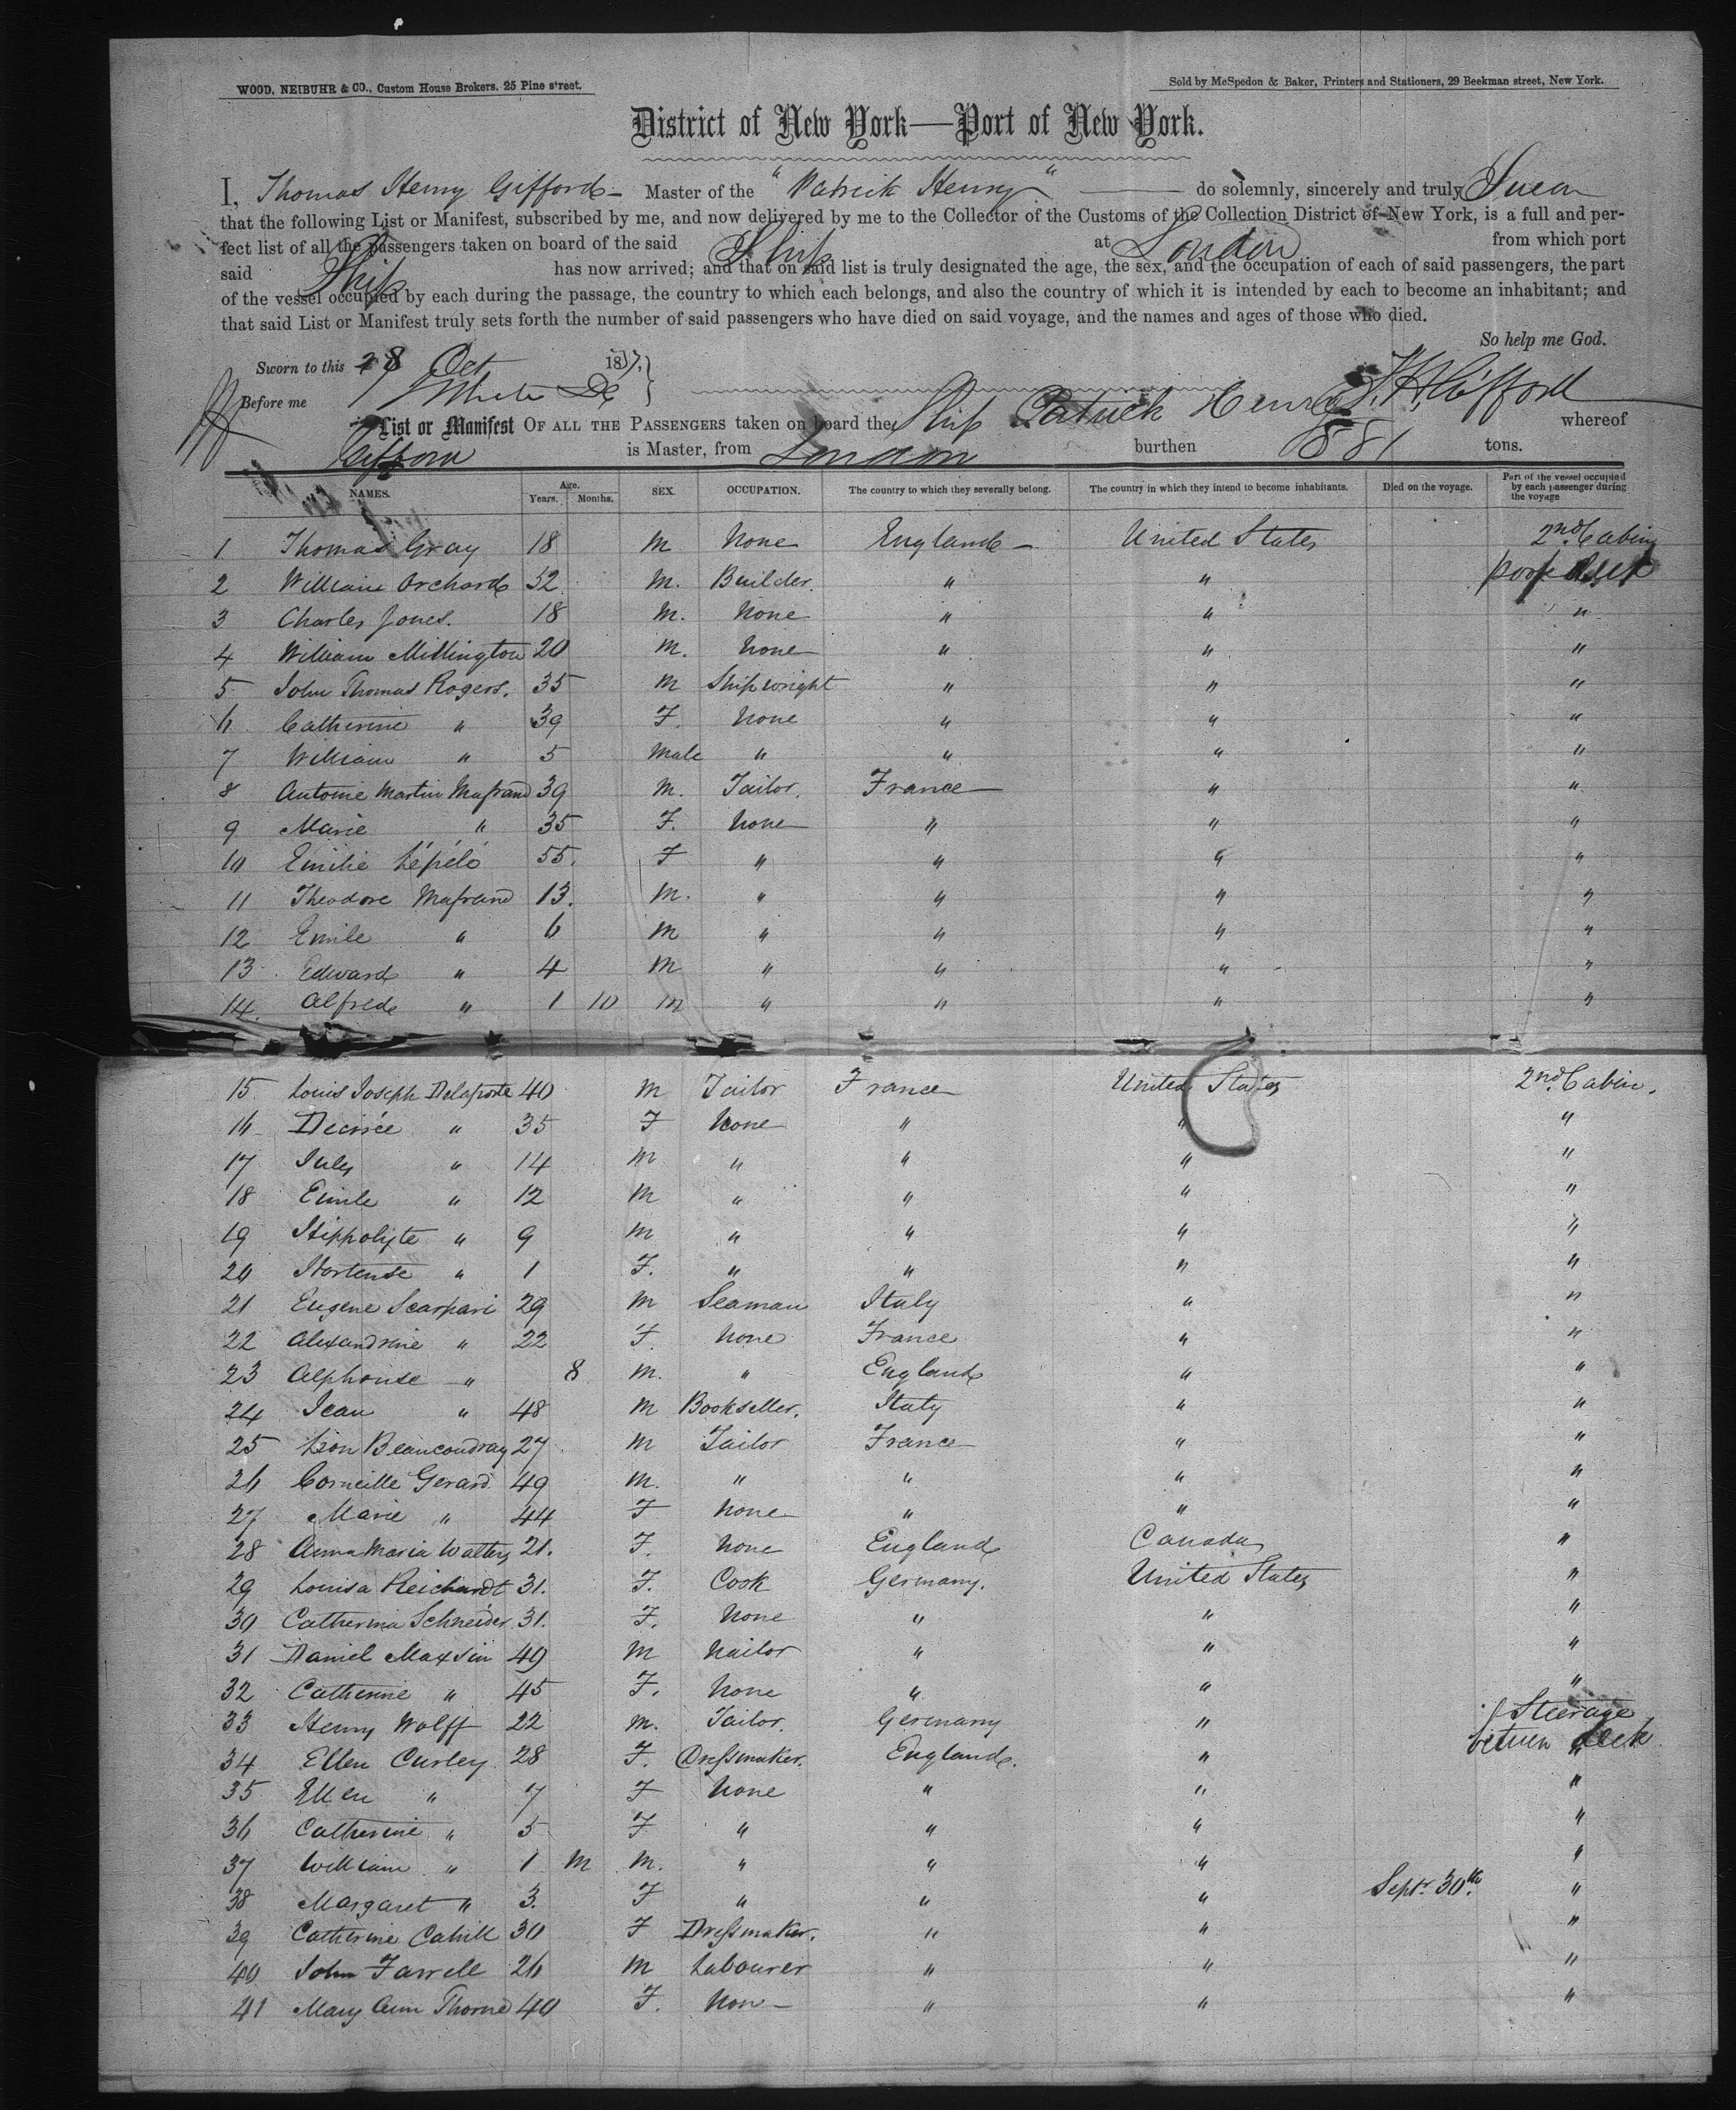 WOOD, NEIBUHR & CO., Custom House Brokers. 25 Pine street.
Sold by McSpedon & Baker, Printers and Stationers, 29 Beekman street, New York.
District of New York—Port of New York.
I, Thomas Henry Gifford — Master of the "Patrick Henry" — do solemnly, sincerely and truly Swear
that the following List or Manifest, subscribed by me, and now delivered by me to the Collector of the Customs of the Collection District of New York, is a full and per-
fect list of all the passengers taken on board of the said Ship at London from which port
said Ship has now arrived; and that on said list is truly designated the age, the sex, and the occupation of each of said passengers, the part
of the vessel occupied by each during the passage, the country to which each belongs, and also the country of which it is intended by each to become an inhabitant; and
that said List or Manifest truly sets forth the number of said passengers who have died on said voyage, and the names and ages of those who died.
So help me God.
Sworn to this 28 Oct 1857
Before me T. H. Gifford
List or Manifest OF ALL THE PASSENGERS taken on board the Ship Patrick Henry whereof
Gifford is Master, from London burthen 881 tons.
NAMES. Age. Years. Months. SEX. OCCUPATION. The country to which they severally belong. The country in which they intend to become inhabitants. Died on the voyage. Part of the vessel occupied by each passenger during the voyage
1 Thomas Gray 18 M None England — United States 2nd Cabin
2 William Orchard 52 M. Builder. " " poop deck
3 Charles Jones. 18 M. None " " "
4 William Millington 20 M. None " " "
5 John Thomas Rogers. 35 M Shipwright " " "
6 Catherine " 39 F. None " " "
7 William " 5 Male " " " "
8 Antoine Martin Masrand 39 M. Tailor. France " "
9 Marie " 35 F. None " " "
10 Emilie Lépélé 55. F " " " "
11 Theodore Masrand 13. M. " " " "
12 Emile " 6 M " " " "
13 Edward " 4 M " " " "
14 Alfred " 1 10 M " " " "
15 Louis Joseph Delaporte 40 M Tailor France United States 2nd Cabin.
16 Decirée " 35 F None " " "
17 July " 14 M " " " "
18 Emile " 12 M " " " "
19 Hippolyte " 9 M " " " "
20 Hortense " 1 F. " " " "
21 Eugene Scarpari 29 M Seaman Italy " "
22 Alexandrine " 22 F. None France " "
23 Alphonse " 8 M. " England " "
24 Jean " 48 M Bookseller. Italy " "
25 Leon Beaucoudray 27 M Tailor France " "
26 Corneille Gerard 49 M. " " " "
27 Marie " 44 F None " " "
28 Anna Maria Walters 21. F. None England Canada "
29 Louisa Reichardt 31. F. Cook Germany. United States "
30 Catherina Schneider 31. F. None " " "
31 Daniel Maxsin 49 M Nailor " " "
32 Catherine " 45 F. None " " "
33 Henry Wolff 22 M. Tailor. Germany " Steerage
34 Ellen Curley 28 F. Dressmaker. England. " between deck "
35 Ellen " 7 F None " " "
36 Catherine " 5 F " " " "
37 William " 1 M M. " " " "
38 Margaret " 3. F " " " Septr. 30th. "
39 Catherine Cahill 30 F Dressmaker. " " "
40 John Farrell 26 M Labourer " " "
41 Mary Ann Thorne 40 F. Non— " " "